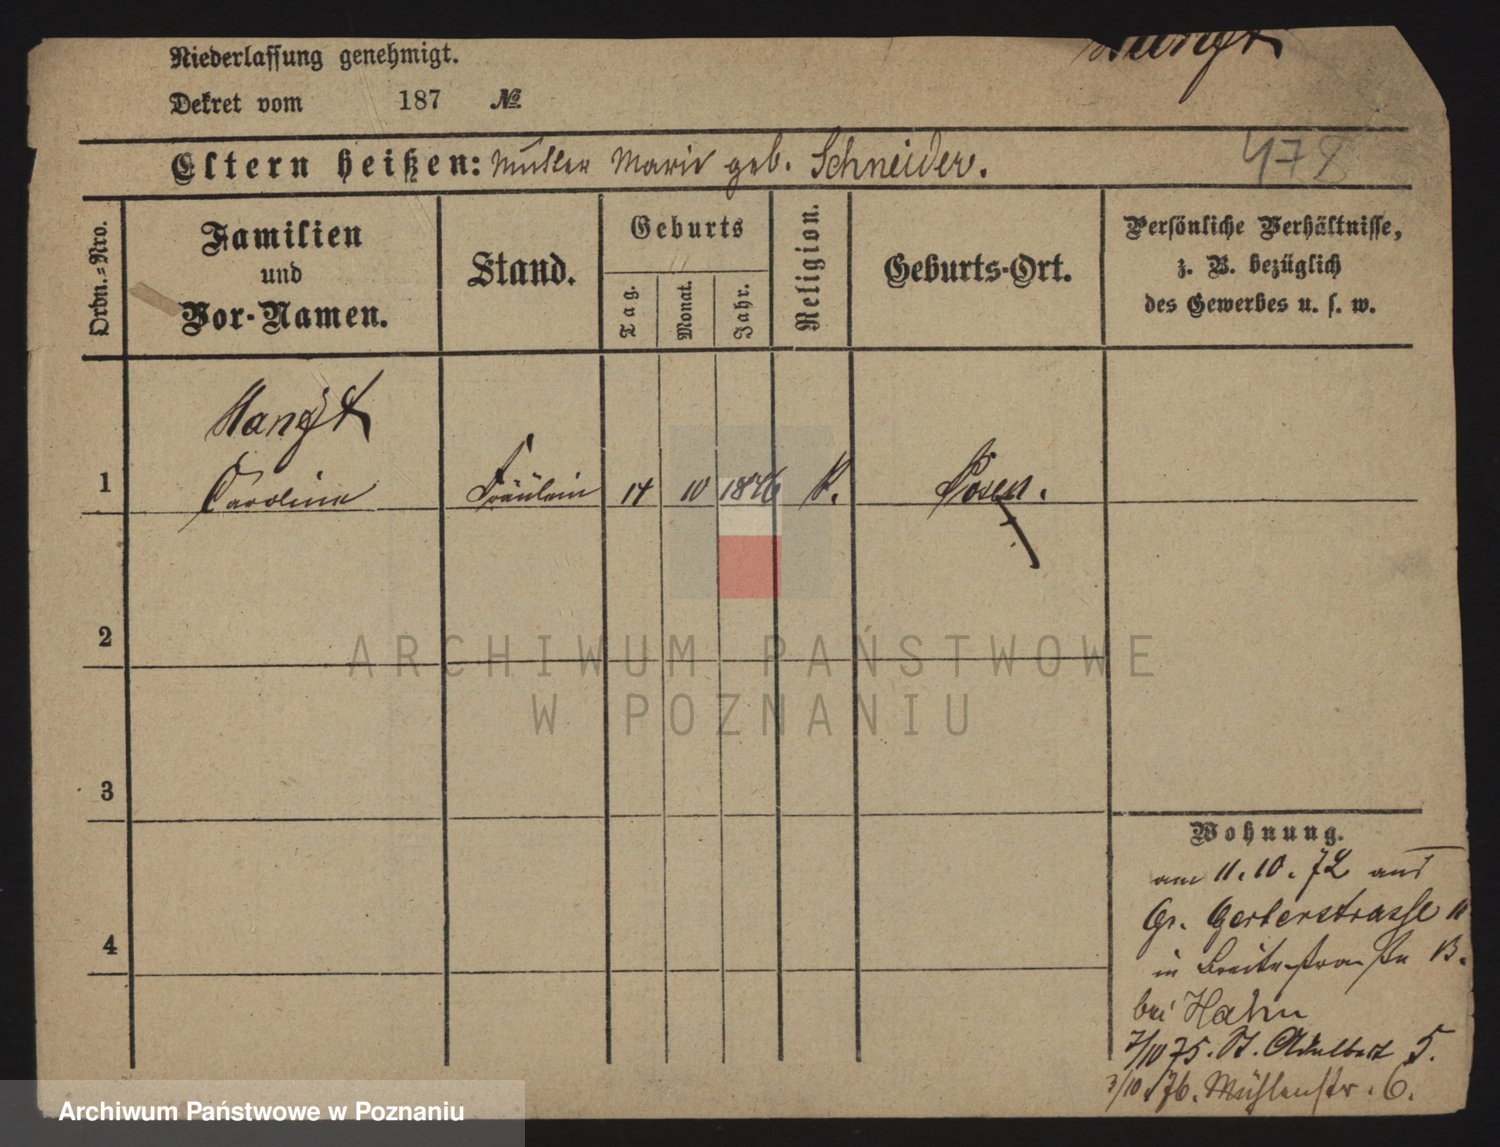 Niederlassung genehmigt.
Dekret vom 187 №
Eltern heißen: Mutter Marie geb. Schneider.
478
Ordn.-Nro.
Familien
und
Vor-Namen.
Stand.
Geburts
Tag.
Monat.
Jahr.
Religion.
Geburts-Ort.
Persönliche Verhältnisse,
z. B. bezüglich
des Gewerbes u. s. w.
1
Caroline Fräulein 14 10 1846 K. Posen.
2
3
4
Wohnung.
am 11. 10. 72 aus
Gr. Gerberstrasse 11
in Breitestraße B.
bei Hahn
7/10 75. St. Adalbert 5.
3/10. 76. Mühlenstr. 6.
ARCHIWUM PAŃSTWOWE
W POZNANIU
Archiwum Państwowe w Poznaniu